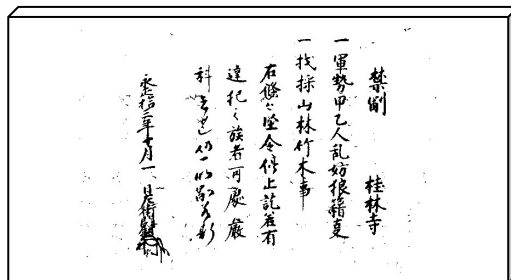 禁制　桂林寺
一軍勢甲乙人乱妨狼籍事
一伐採山林竹木事
右條々堅令停止訖若有
違犯之族者可處嚴
科者也仍
永禄三年十月一日左衛門